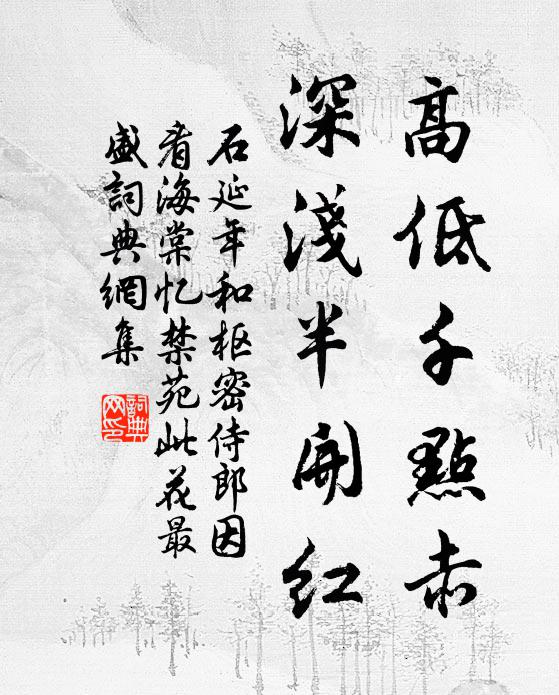 高低千點赤
深淺半開紅
石延年和枢密侍郎因
看海棠忆禁苑此花最
盛詞典網集
詞典
网印